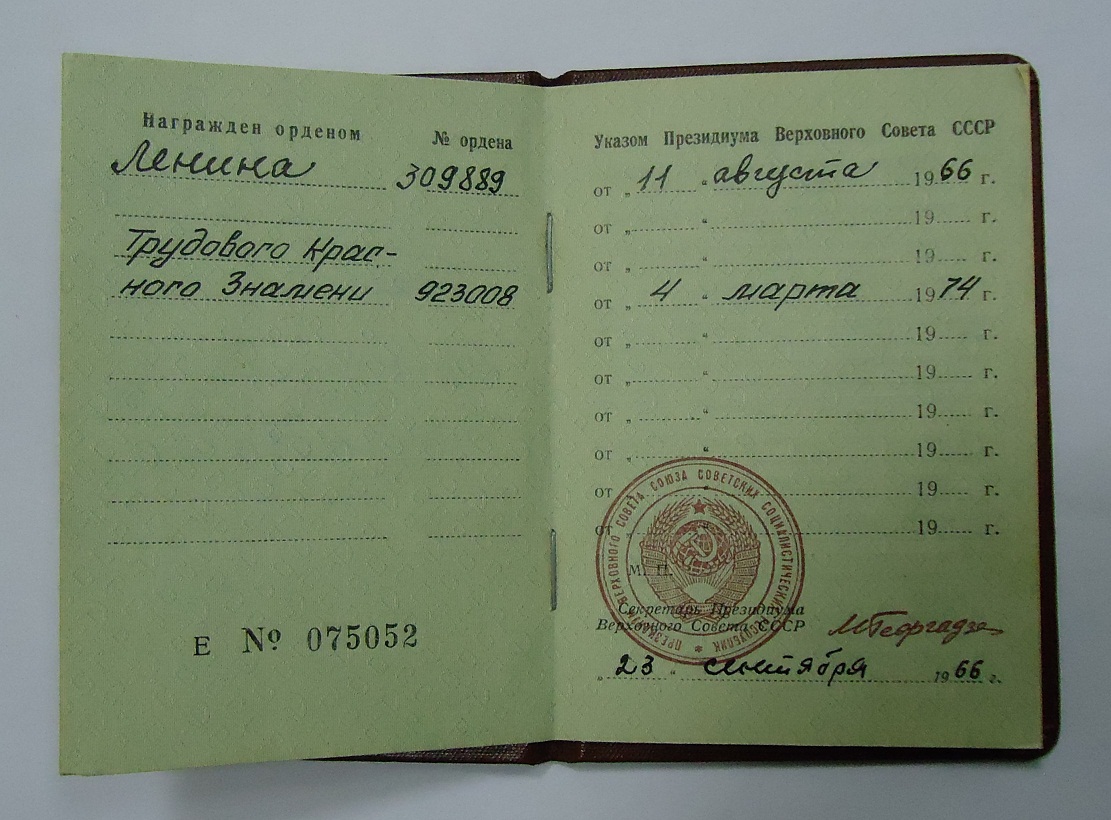 Награжден орденом № ордена
Ленина 309889
Трудового Крас-
ного Знамени 923008
Е № 075052
Указом Президиума Верховного Совета СССР
от „ 11 “ августа 1966 г.
от „ “ 19 г.
от „ “ 19 г.
от „ 4 “ марта 1974 г.
от „ “ 19 г.
от „ “ 19 г.
от „ “ 19 г.
от „ “ 19 г.
от „ “ 19 г.
от „ “ 19 г.
М. П.
ПРЕЗИДИУМ ВЕРХОВНОГО СОВЕТА СОЮЗА СОВЕТСКИХ СОЦИАЛИСТИЧЕСКИХ РЕСПУБЛИК
Секретарь Президиума
Верховного Совета СССР
МГеоргадзе
„ 23 “ сентября 1966 г.